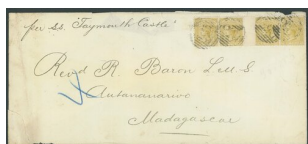 per S.S. "Taymouth Castle"
Revd R. Baron L.M.S
Antananarivo
Madagascar